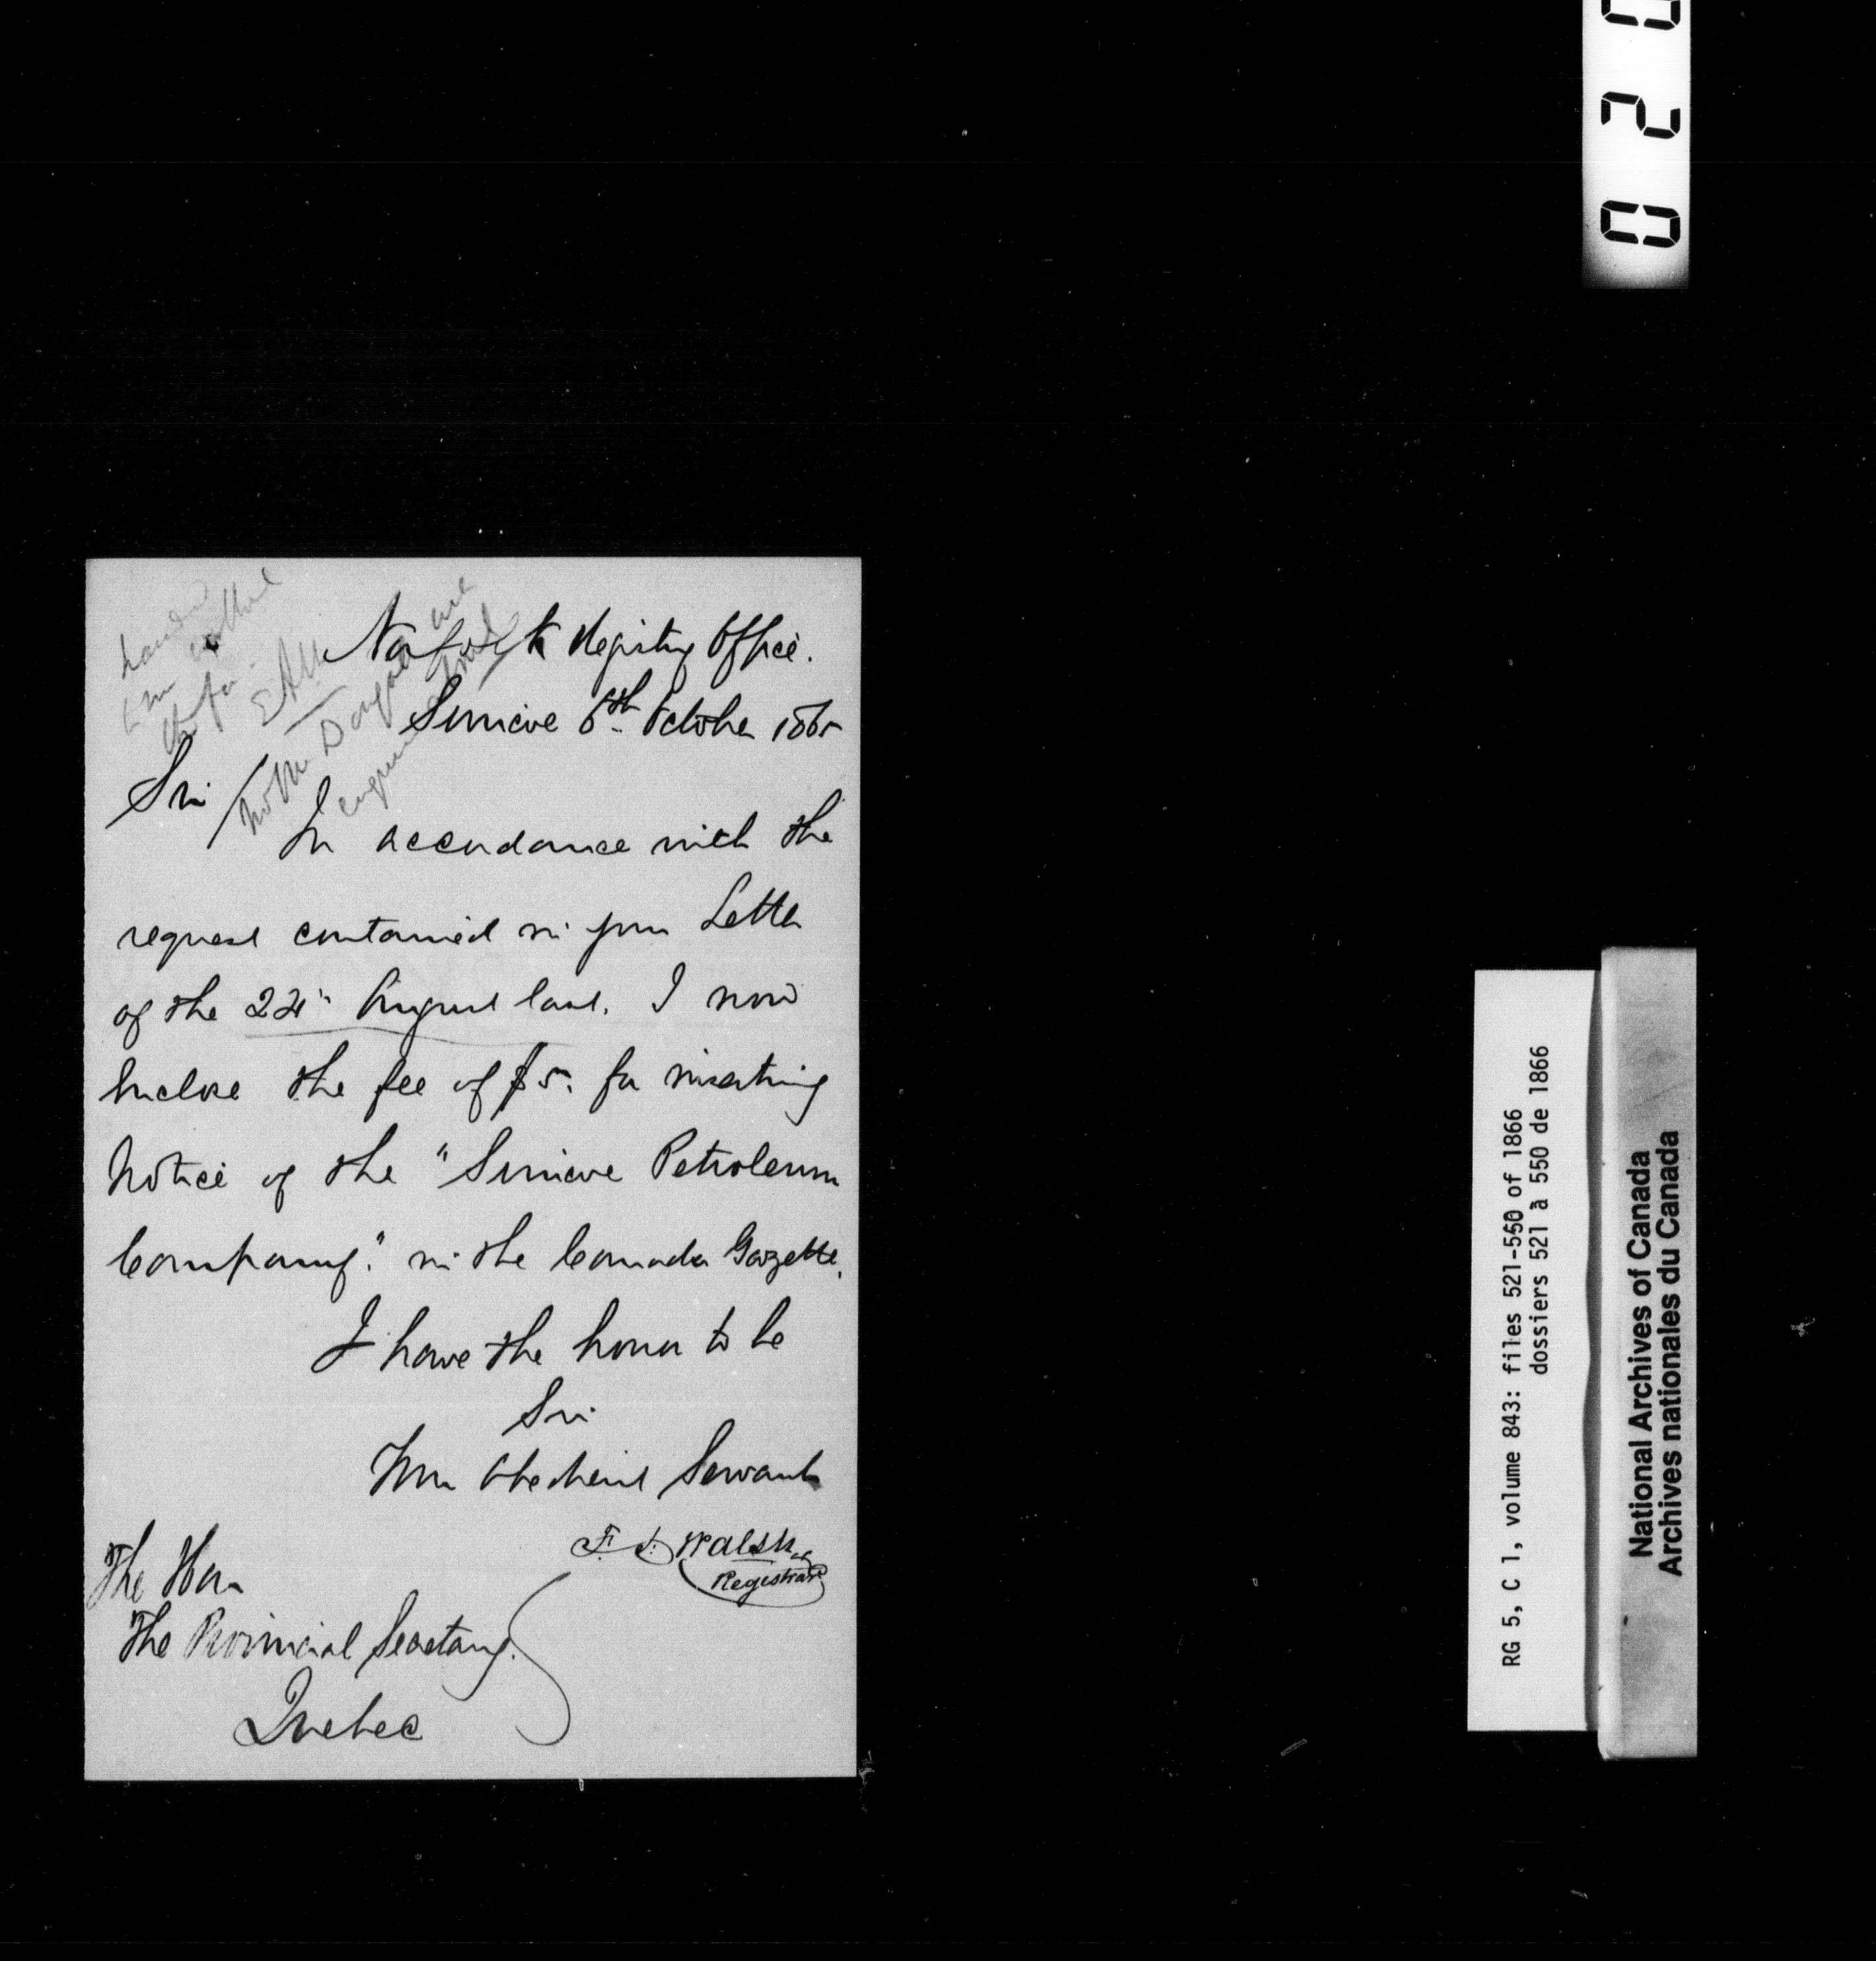 020
Norfolk Registry Office.
Simcoe 6th October 1865
Sir
In accordance with the
request contained in your Letter
of the 22d August last. I now
Inclose the fee of $5. for inserting
Notice of the "Simcoe Petroleum
Company." in the Canada Gazette.
I have the honor to be
Sir
Your Obedient Servant
F. L. Walsh
Registrar
The Hon
The Provincial Secretary.
Quebec
RG 5, C 1, volume 843: files 521-550 of 1866
dossiers 521 à 550 de 1866
National Archives of Canada
Archives nationales du Canada